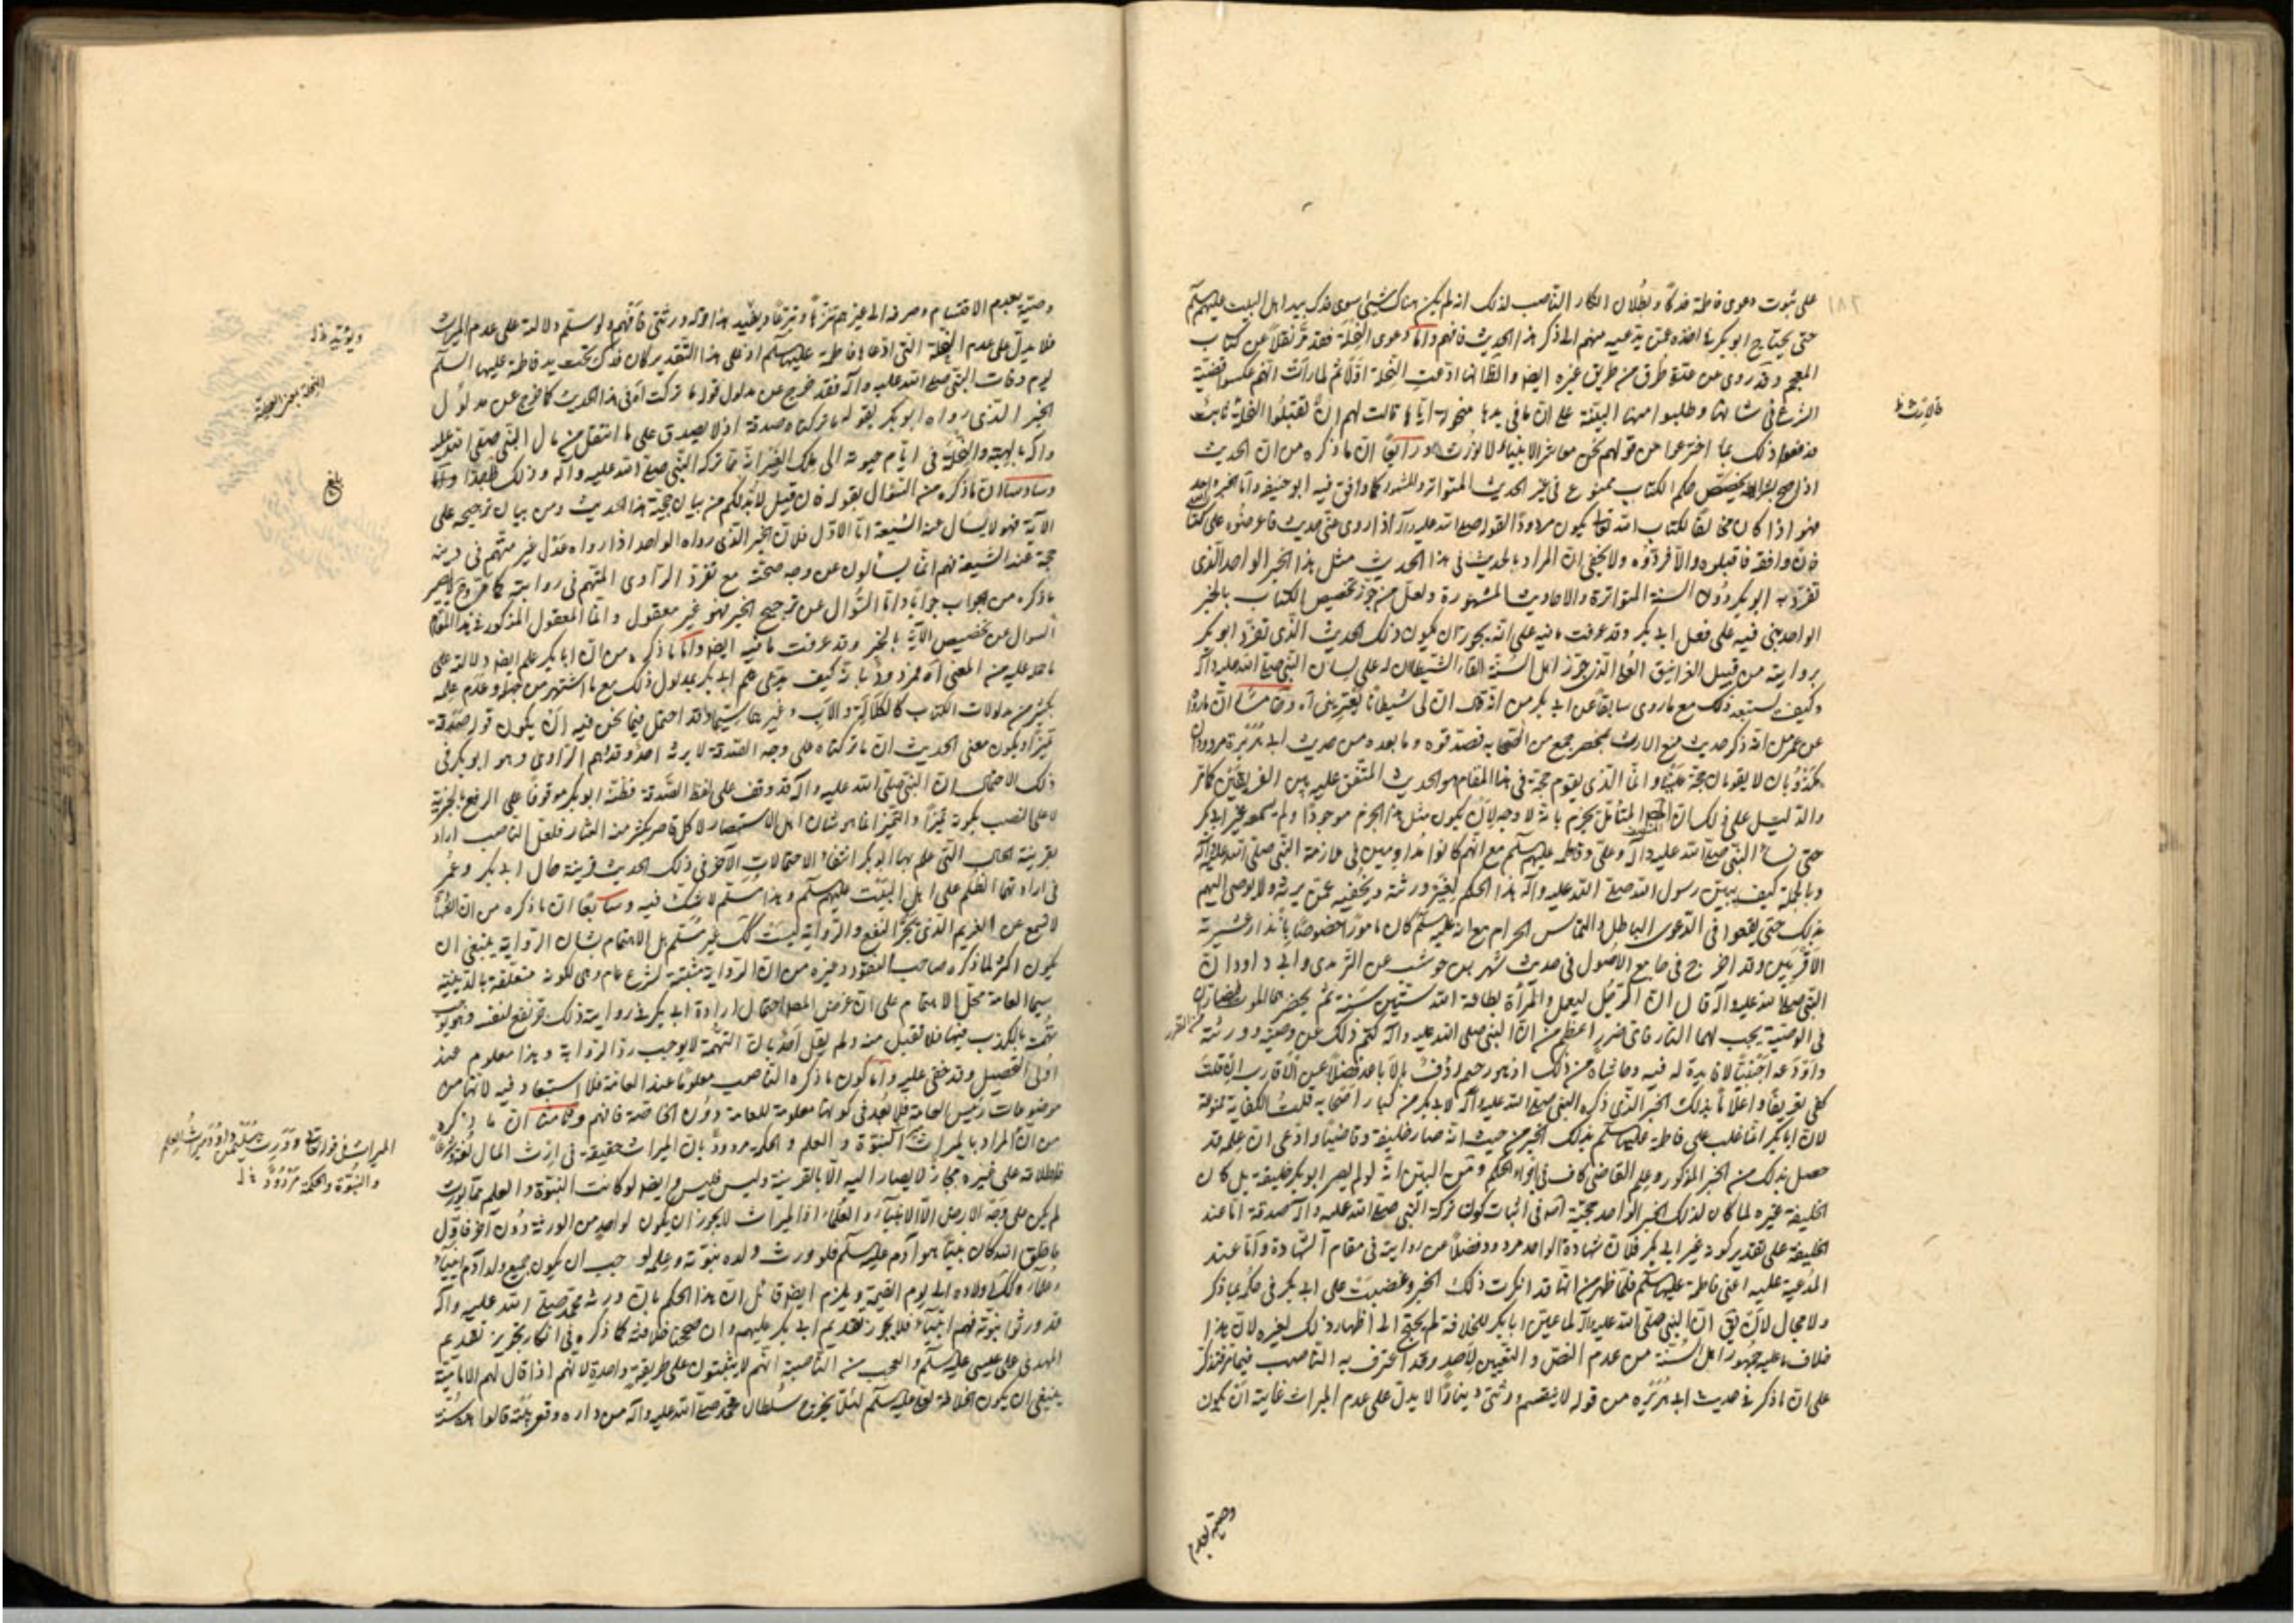 على ثبوت دعوى فاطمة فدكا وبطلان انكار الناصب لذلك انه لم يكن هناك شيئ سوى فدك بيد اهل البيت عليهم السلام
حتى يحتاج ابو بكر في اخذه عمن يدعيه منهم الى ذكر هذا الحديث فافهم واما دعوى النحلة فقد مر نقلا عن كتاب
المعجم وقد روى من عدة طرق من طريق غيره ايضا والظاهر انها ادعت النحلة اولا ثم لما رأت انهم عكسوا قضية
الشرع في شانها وطلبوا منها البينة على ان ما في يدها منحولة اياها قالت لهم ان لم تقبلوا النحلة
فدفعوا ذلك بما اخترعوا من قولهم نحن معاشر الانبياء لا نورث ورابعا ان ما ذكره من ان الحديث
اذا صح يخصص حكم الكتاب ممنوع في غير الحديث المتواتر والمشهور كما وافق فيه ابو حنيفة واما الخبر الواحد
فهو اذا كان مخالفا لكتاب الله تعالى يكون مردودا لقوله صلى الله عليه وآله اذا روى عني حديث فاعرضوه على كتاب
فان وافقه فاقبلوه والا فردوه ولا يخفى ان المراد بالحديث في هذا الحديث مثل هذا الخبر الواحد الذي
تفرد به ابو بكر دون السنة المتواترة والاحاديث المشهورة ولعل من جوز تخصيص الكتاب بالخبر
الواحد بنى فيه على فعل ابي بكر وقد عرفت ما فيه على انه يجوز ان يكون ذلك الحديث الذي تفرد ابو بكر
بروايته من قبيل الغرانيق العلى الذي جوز اهل السنة القاء الشيطان له على لسان النبي صلى الله عليه وآله
وكيف يستبعد ذلك مع ما روى سابقا عن ابي بكر من انه قال ان لي شيطانا يعتريني اه وخامسا ان ما رواه
عن عمر من انه ذكر حديث منع الارث بمحضر جمع من الصحابة فصدقوه وما بعده من حديث ابي هريرة مردودان
مكذوبان لا يقومان حجة علينا وانما الذي يقوم حجة في هذا المقام هو الحديث المتفق عليه بين الفريقين كما مر
والدليل على ذلك ان المتأمل يجزم بانه لا وجه لان يكون مثل هذا الخبر موجودا ولم يسمعه غير ابي بكر
حتى نساء النبي صلى الله عليه وآله وعلي وفاطمة عليهم السلام مع انهم كانوا مداومين في ملازمة النبي صلى الله عليه وآله
وبالجملة كيف يبين رسول الله صلى الله عليه وآله هذا الحكم لغير ورثته ويخفيه عمن يرثه ولا يوصى اليهم
بذلك حتى يقعوا في الدعوى الباطل والتماس الحرام مع انه عليه السلام كان مامورا خصوصا بانذار عشيرته
الاقربين وقد اخرج في جامع الاصول في حديث شهر بن حوشب عن الترمذي وابي داود ان
النبي صلى الله عليه وآله قال ان الرجل ليعمل والمرأة بطاعة الله ستين سنة ثم يحضرهما الموت فيضاران
في الوصية يجب لهما النار فاى ضرر اعظم من ان النبي صلى الله عليه وآله كتم ذلك عن وصيه وورثته
واودعه اجنبيا لا فائدة له فيه وحاشاه من ذلك اذ هو رحيم رؤف بالاباعد فضلا عن الاقارب ان قلت
كفى تعريفا واعلاما بذلك الخبر الذي ذكره النبي صلى الله عليه وآله لابي بكر من كبار اصحابه قلت الكفاية ممنوعة
لان ابا بكر انما غلب على فاطمة عليها السلام بذلك الخبر من حيث انه صار خليفة وقاضيا وادعى ان علمه قد
حصل بذلك من الخبر المذكور وعلم القاضي كاف في اجراء الحكم ومن البين انه لو لم يصر ابو بكر خليفة بل كان
الخليفة غيره لما كان لذلك الخبر الواحد حجية اصلا في اثبات كون تركة النبي صلى الله عليه وآله صدقة اما عند
الخليفة على تقدير كونه غير ابي بكر فلان شهادة الواحد مردود فضلا عن روايته في مقام الشهادة واما عند
المدعية عليه اعني فاطمة عليها السلام فلما ظهر من انها قد انكرت ذلك الخبر وغضبت على ابي بكر في حكمه بما ذكر
ولا مجال لان يق ان النبي صلى الله عليه وآله لما عين ابا بكر للخلافة لم يحتج الى اظهار ذلك لغيره لان هذا
خلاف ما عليه جمهور اهل السنة من عدم النص والتعيين لاحد وقد اعترف به الناصب فيما مر فتذكر
على ان ما ذكر في حديث ابي هريرة من قوله لا يقتسم ورثتي دينارا لا يدل على عدم الميراث غاية ان يكون
وصية بعدم
وصية بعدم الاقتسام وصرفه الى غيرهم تنزها وتبرعا ويفيد هذا قوله ورثتي فافهم ولو سلم دلالته على عدم الميراث
فلا يدل على عدم النحلة التي ادعاها فاطمة عليها السلام اذ على هذا التقدير كان فدك تحت يد فاطمة عليها السلام
يوم وفات النبي صلى الله عليه وآله فقد خرج عن مدلول قوله ما تركت في هذا الحديث كما خرج عن مدلول
الخبر الذي رواه ابو بكر بقوله ما تركناه صدقة اذ لا يصدق على ما انتقل من مال النبي صلى الله عليه
وآله بالهبة والنحلة في ايام حيوته الى ملك الغير انه مما تركه النبي صلى الله عليه وآله وذلك ظاهر جدا
وسادسا ان ما ذكره من السؤال بقوله فان قيل لابد لكم من بيان حجية هذا الحديث ومن بيان ترجيحه على
الآية فهو لا يسأل عنه الشيعة اما الاول فلان الخبر الذي رواه الواحد اذا رواه عدل غير متهم في دينه
حجة عند الشيعة فهم انما يسألون عن وجه صحته مع تفرد الراوى المتهم في روايته كما مر
ما ذكره من الجواب جوابا واما السؤال عن ترجيح الخبر فهو غير معقول وانما المعقول المذكور في هذا المقام
السوال عن تخصيص الآية بالخبر وقد عرفت ما فيه ايضا واما ما ذكره من ان ابا بكر علم ايضا دلالته على
ما حمله عليه من المعنى اه فمردود بانه كيف يدعى علم ابي بكر بمدلول ذلك مع ما اشتهر من جهله وعدم علمه
بكثير من مدلولات الكتاب كالكلالة والاب وغيرهما سيما وقد احتمل فيما نحن فيه ان يكون قوله صدقة
تميزا ويكون معنى الحديث ان ما تركناه على وجه الصدقة لا يرثه احد وقد وهم الراوى وهو ابو بكر في
ذلك لاحتمال ان النبي صلى الله عليه وآله قد وقف على لفظ الصدقة فظنه ابو بكر موقوفا على الرفع بالخبرية
لا على النصب بكونه تميزا والتميز انما هو شان اهل الاستبصار لا كل قاصر فلعل الناصب اراد
بقرينة الحال التي علم بها ابو بكر انتفاء الاحتمالات الاخر في ذلك الحديث قرينة حال ابي بكر وعمر
في ارادتهما الظلم على اهل البيت عليهم السلام وهذا مسلم لا شك فيه وسابعا ان ما ذكره من ان الشهادة
لا تسمع عن الغريم الذي يجر النفع والرواية ليست كك غير مسلم بل الاهتمام بشان الرواية ينبغي ان
يكون اكثر لما ذكره صاحب النقود وغيره من ان الرواية مثبتة لشرع عام وهي لكونه متعلقة بالدينية
سيما العامة محل الاهتمام على ان غرض المصنف احتمال ارادة ابي بكر في روايته ذلك جر نفع لنفسه
متهمة بالكذب فيها فلا تقبل منه ولم يقل احد بان التهمة لا يوجب رد الرواية وهذا معلوم عند
اولى التحصيل وقد خفى عليه واما كون ما ذكره الناصب معلوما عند العامة فلا استبعاد فيه لانها من
موضوعات رئيس العامة فلا بعد في كونها معلومة للعامة دون الخاصة فافهم وثامنا ان ما ذكره
من ان المراد بالميراث النبوة والعلم والحكمة مردود بان الميراث حقيقة في ارث المال لغة وشرعا
فاطلاقه على غيره مجاز لا يصار اليه الا بالقرينة وليس فليس وايضا لو كانت النبوة والعلم مما يورث
لم يكن على وجه الارض الا الانبياء والعلماء اذ الميراث لا يجوز ان يكون لواحد من الورثة دون آخر فاول
ما خلق الله كان نبيا هو آدم عليه السلام فلو ورث ولده نبوته وعلمه لوجب ان يكون جميع ولد آدم انبياء
وعلماء وكك اولاده الى يوم القيمة ويلزم ايضا قائل ان هذا الحكم بان ورثة محمد صلى الله عليه وآله
قد ورثوا نبوته فهم انبياء فلا يجوز تقديم ابي بكر عليهم وان صححنا خلافته كما ذكره في انكار تجويز تقديم
المهدى على عيسى عليه السلام والعجب من الناصبة انهم لا يثبتون على طريقة واحدة لانهم اذا قال لهم الامامية
ينبغى ان يكون الخلافة لعلي عليه السلام لئلا يخرج سلطان محمد صلى الله عليه وآله من داره وقعر بيته قالوا هذه سنة
بلغ
الميراث في قوله تعالى وورث سليمن داود ميراث العلم
والنبوة والحكمة مردود